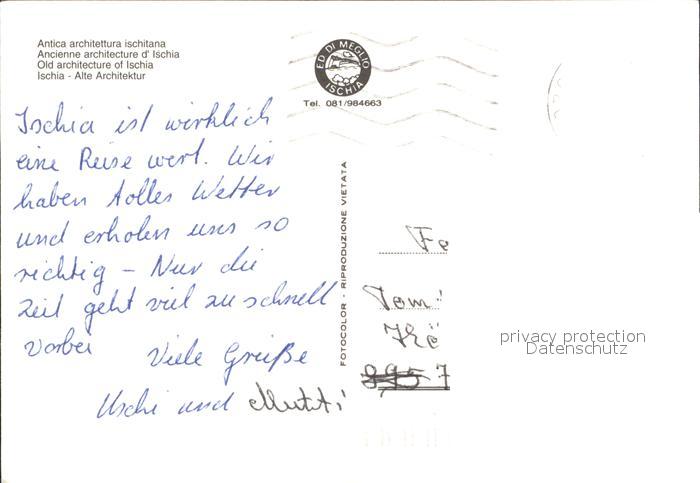 Antica architettura ischitana
Ancienne architecture d' Ischia
Old architecture of Ischia
Ischia - Alte Architektur
ED. DI MEGLIO
ISCHIA
Tel. 081/984663
Ischia ist wirklich
eine Reise wert. Wir
haben tolles Wetter
und erholen uns so
richtig - Nur die
Zeit geht viel zu schnell
vorbei
Viele Grüße
Uschi und Mutti
FOTOCOLOR - RIPRODUZIONE VIETATA
Fe
Tom
privacy protection
Datenschutz